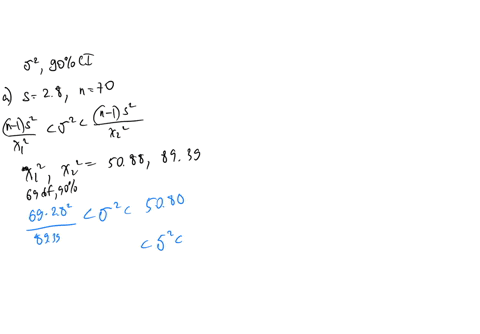 σ², 90% CI
a) s = 2.8, n = 70
(n-1)s²/χ₁² < σ² < (n-1)s²/χ₂²
χ₁², χ₂² = 50.88, 89.39
69 df, 90%
69·2.8²/89.39 < σ² < 50.80
< σ² <